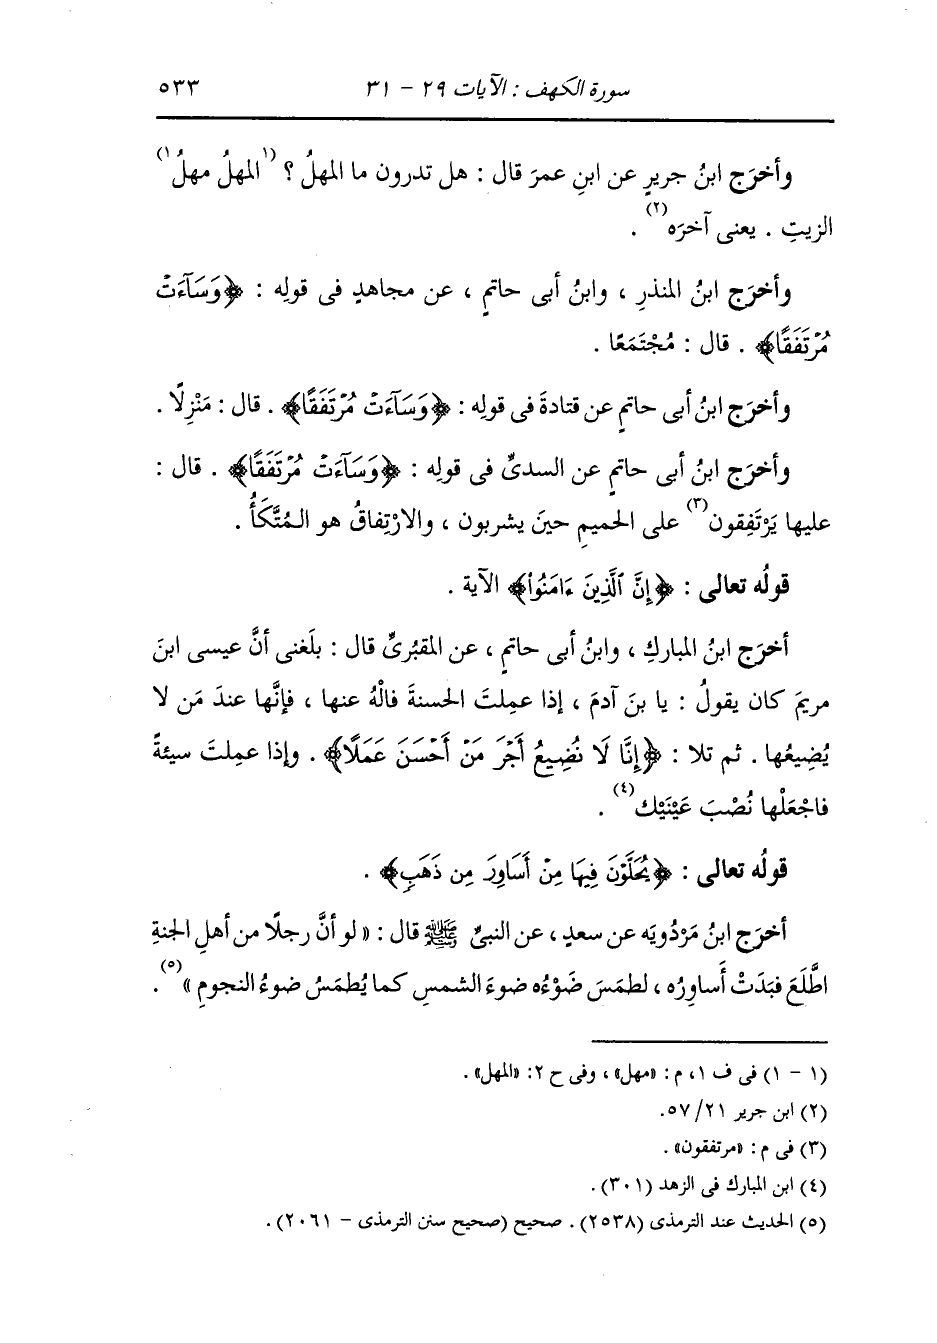 سورة الكهف : الآيات ٢٩ - ٣١ ٥٣٣
وأخرَج ابنُ جريرٍ عن ابنِ عمرَ قال : هل تدرون ما المهلُ ؟ (١المهلُ مهلُ١)
الزيتِ . يعنى آخرَه(٢) .
وأخرَج ابنُ المنذرِ ، وابنُ أبى حاتمٍ ، عن مجاهدٍ فى قولِه : ﴿وَسَآءَتْ
مُرْتَفَقًا﴾ . قال : مُجْتَمَعًا .
وأخرَج ابنُ أبى حاتمٍ عن قتادةَ فى قولِه : ﴿وَسَآءَتْ مُرْتَفَقًا﴾ . قال : مَنْزِلًا .
وأخرَج ابنُ أبى حاتمٍ عن السدىِّ فى قولِه : ﴿وَسَآءَتْ مُرْتَفَقًا﴾ . قال :
عليها يَرْتَفِقون(٣) على الحميمِ حينَ يشربون ، والارْتِفاقُ هو المُتَّكَأُ .
قولُه تعالى : ﴿إِنَّ ٱلَّذِينَ ءَامَنُوا۟﴾ الآية .
أخرَج ابنُ المباركِ ، وابنُ أبى حاتمٍ ، عن المقبُرىِّ قال : بلَغنى أنَّ عيسى ابنَ
مريمَ كان يقولُ : يا بنَ آدمَ ، إذا عمِلتَ الحسنةَ فالْهُ عنها ، فإنَّها عندَ مَن لا
يُضِيعُها . ثم تلا : ﴿إِنَّا لَا نُضِيعُ أَجْرَ مَنْ أَحْسَنَ عَمَلًا﴾ . وإذا عمِلتَ سيئةً
فاجْعَلْها نُصْبَ عَيْنَيْك(٤) .
قولُه تعالى : ﴿يُحَلَّوْنَ فِيهَا مِنْ أَسَاوِرَ مِن ذَهَبٍ﴾ .
أخرَج ابنُ مَرْدُويَه عن سعدٍ ، عن النبىِّ ﷺ قال : « لو أنَّ رجلًا من أهلِ الجنةِ
اطَّلَعَ فبَدَتْ أَساورُه ، لطمَسَ ضَوْءُه ضوءَ الشمسِ كما يُطمَسُ ضوءُ النجومِ »(٥) .
(١ - ١) فى ف ١، م : «مهل» ، وفى ح ٢: «المهل» .
(٢) ابن جرير ٢١/ ٥٧.
(٣) فى م : «مرتفقون» .
(٤) ابن المبارك فى الزهد (٣٠١) .
(٥) الحديث عند الترمذى (٢٥٣٨) . صحيح (صحيح سنن الترمذى - ٢٠٦١) .